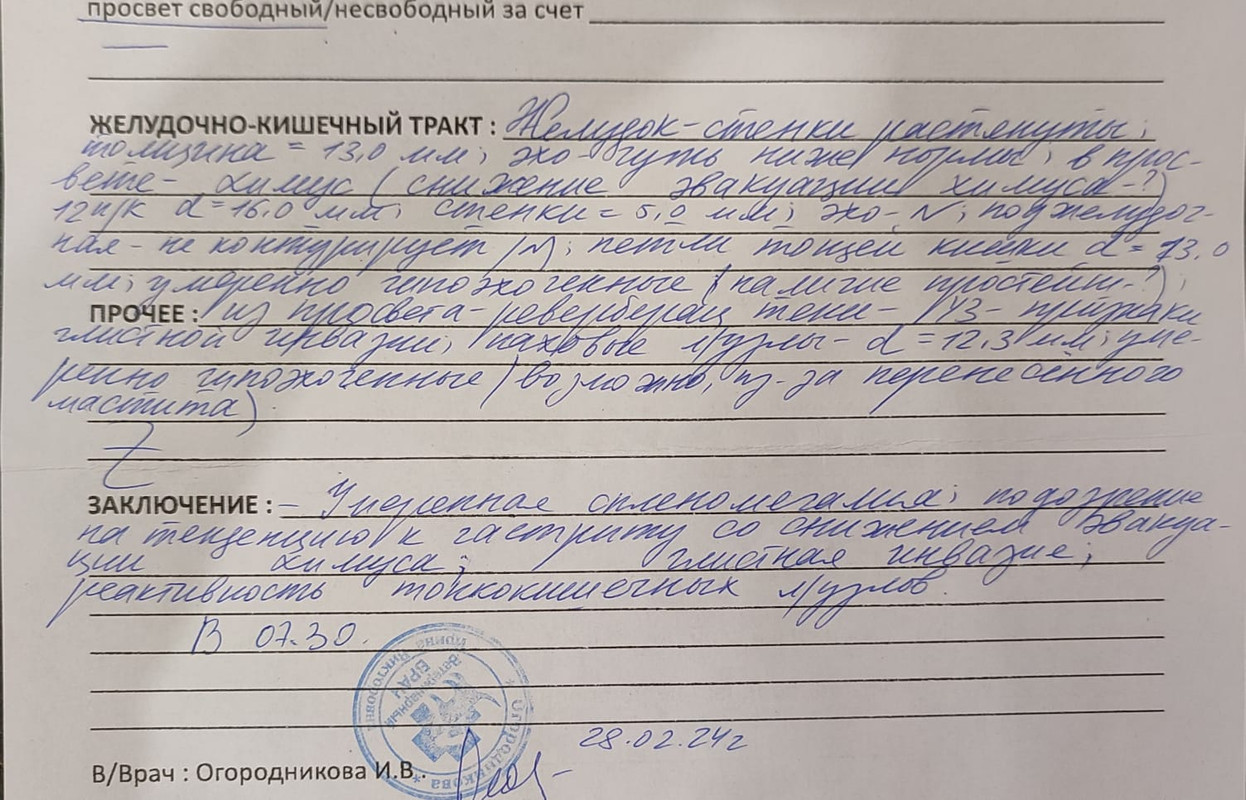 просвет свободный/несвободный за счет
ЖЕЛУДОЧНО-КИШЕЧНЫЙ ТРАКТ : Желудок-стенки растянуты;
толщина = 13,0 мм; эхо- чуть ниже нормы; в прос-
вете- химус (снижение эвакуации химуса-?)
12п/к d=16,0 мм; стенки= 5,0 мм; эхо-N; поджелудоч-
ная- не контурирует /N; петли тощей кишки d= 13,0
мм; умеренно гипоэхогенные (наличие простейш-?);
ПРОЧЕЕ : из просвета-ревербирац тени- УЗ- признаки
глистной инвазии; паховые л/узлы- d=12,3 мм; уме-
ренно гипоэхогенные (возможно, из-за перенесённого
мастита)
ЗАКЛЮЧЕНИЕ : - Умеренная спленомегалия; подозрение
на тенденцию к гастриту со снижением эвакуа-
ции химуса; глистная инвазие;
реактивность тонкокишечных л/узлов.
В 07.30.
Огородникова Ирина Викторовна
Ветеринарный
ВРАЧ
28.02.24г
В/Врач : Огородникова И.В.